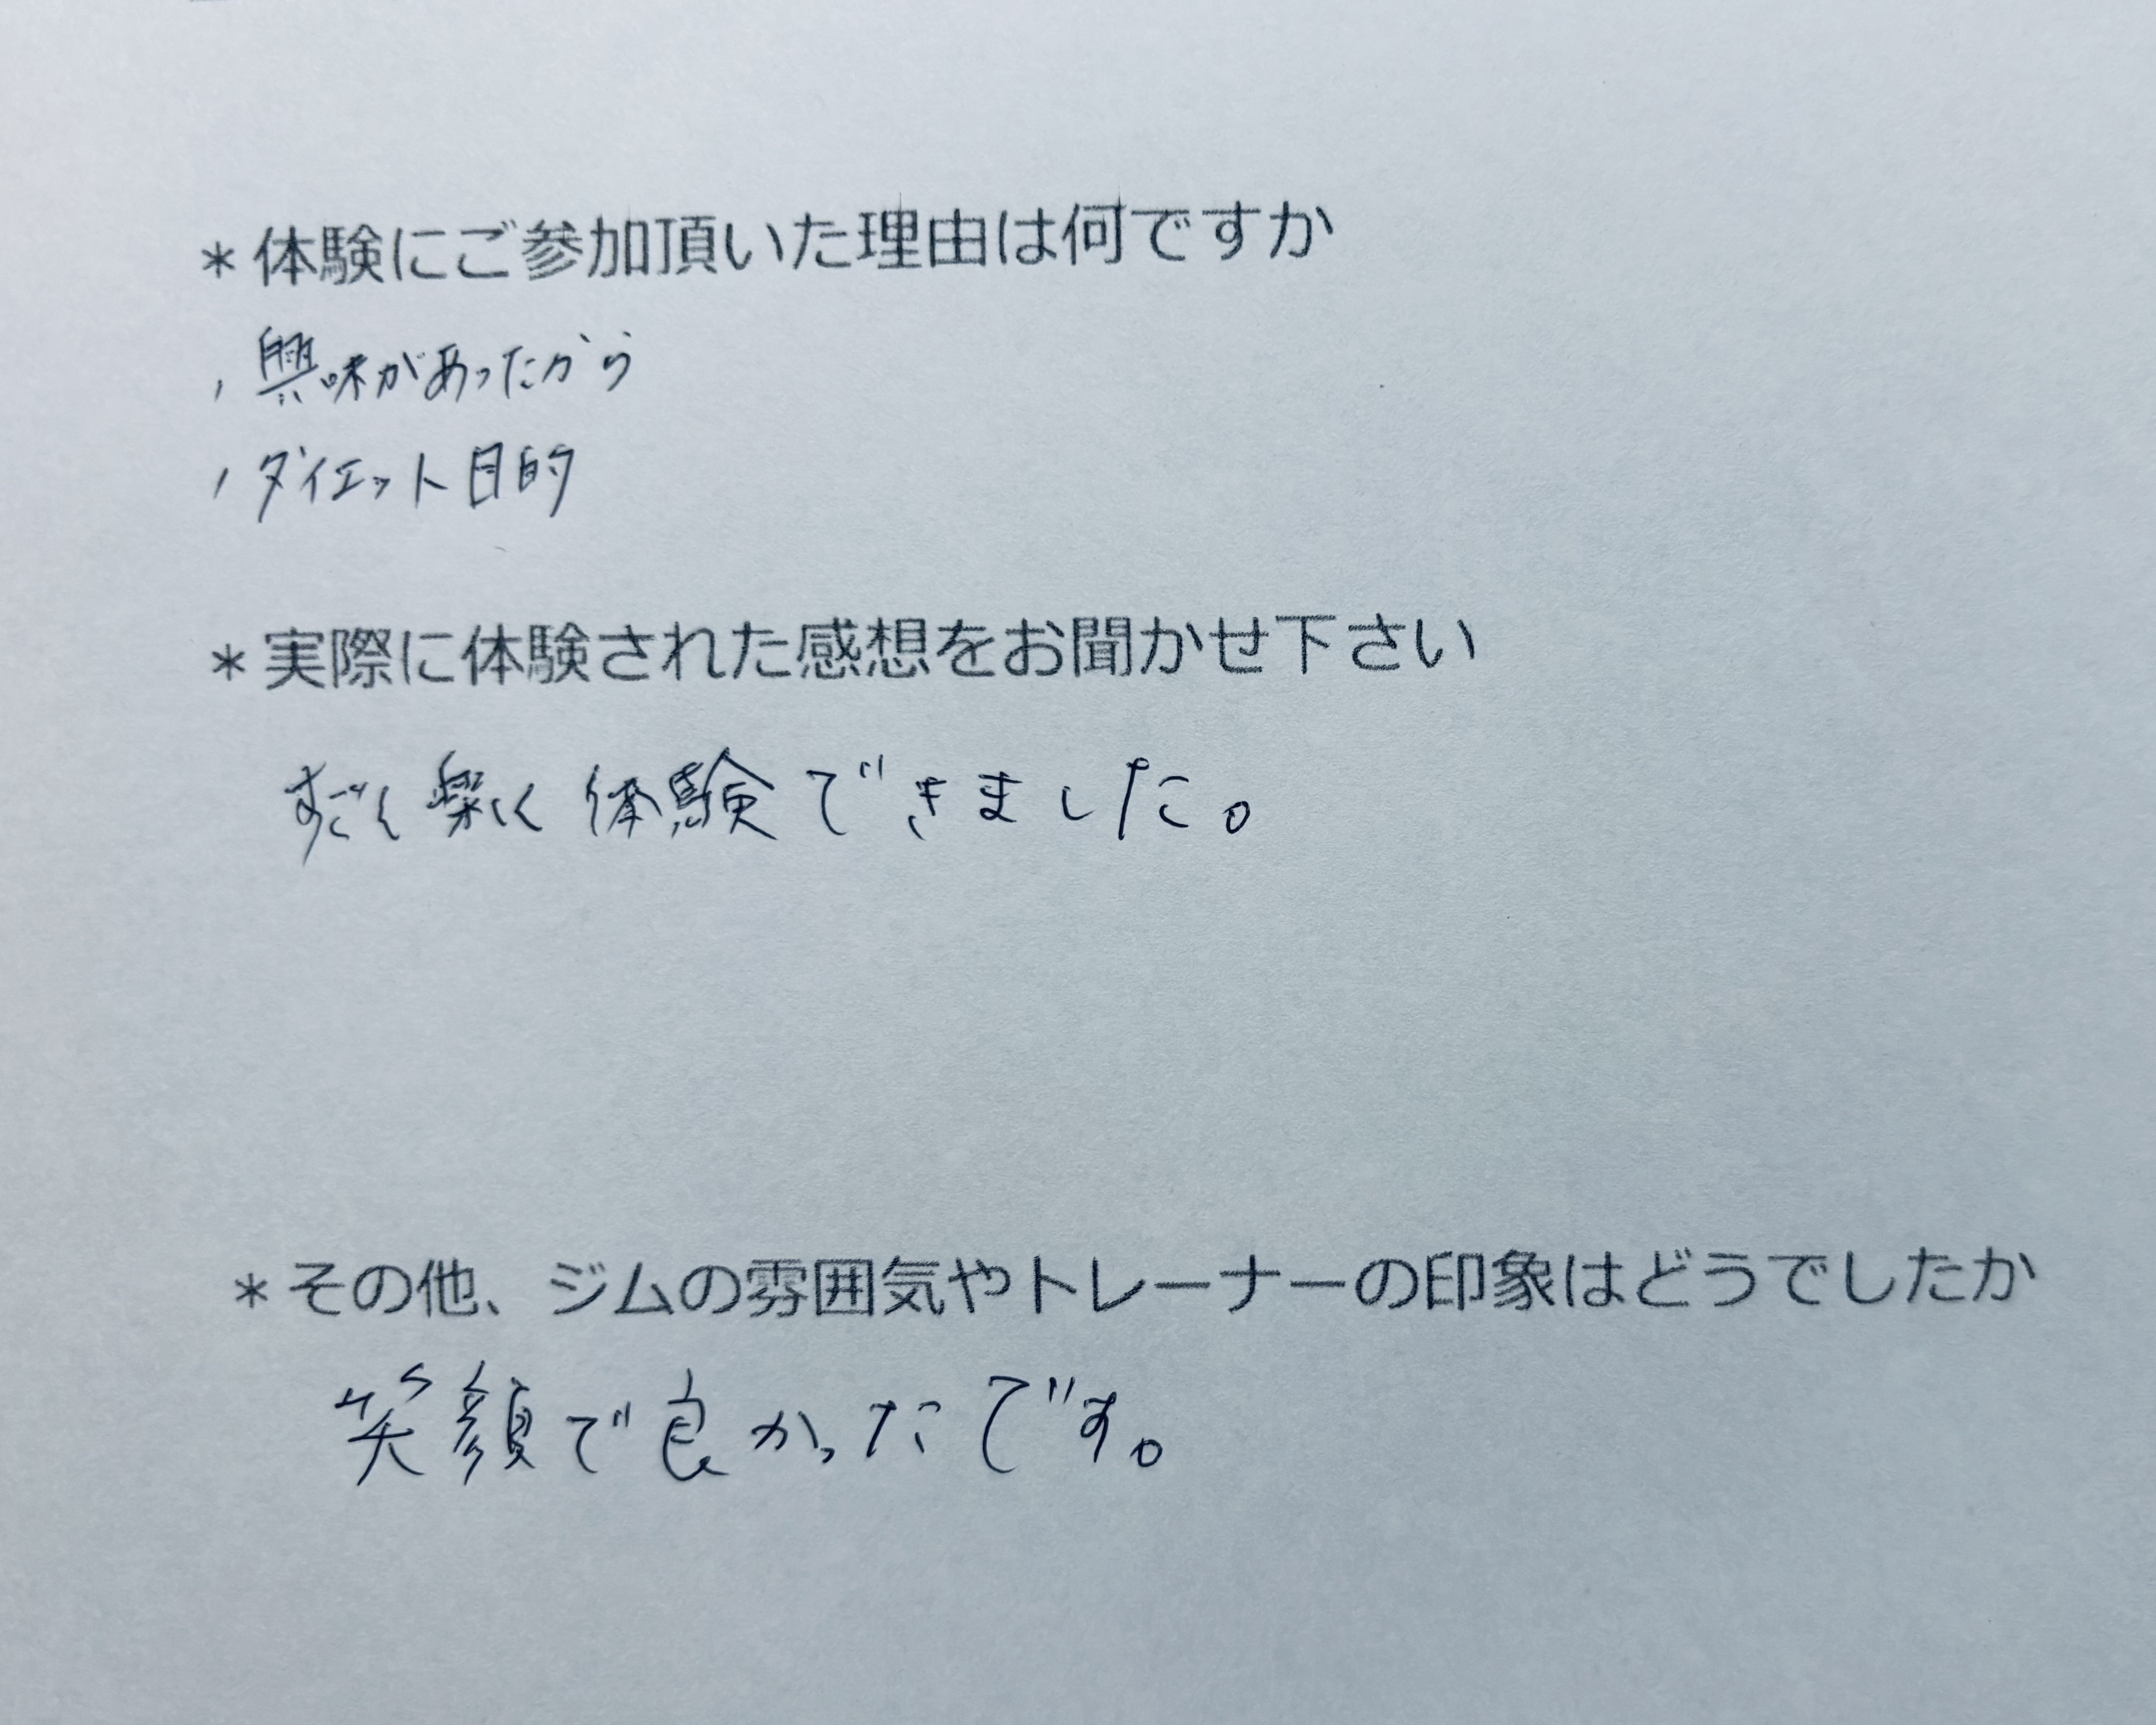 *体験にご参加頂いた理由は何ですか
・興味があったから
・ダイエット目的
*実際に体験された感想をお聞かせ下さい
すごく楽しく体験できました。
*その他、ジムの雰囲気やトレーナーの印象はどうでしたか
笑顔で良かったです。